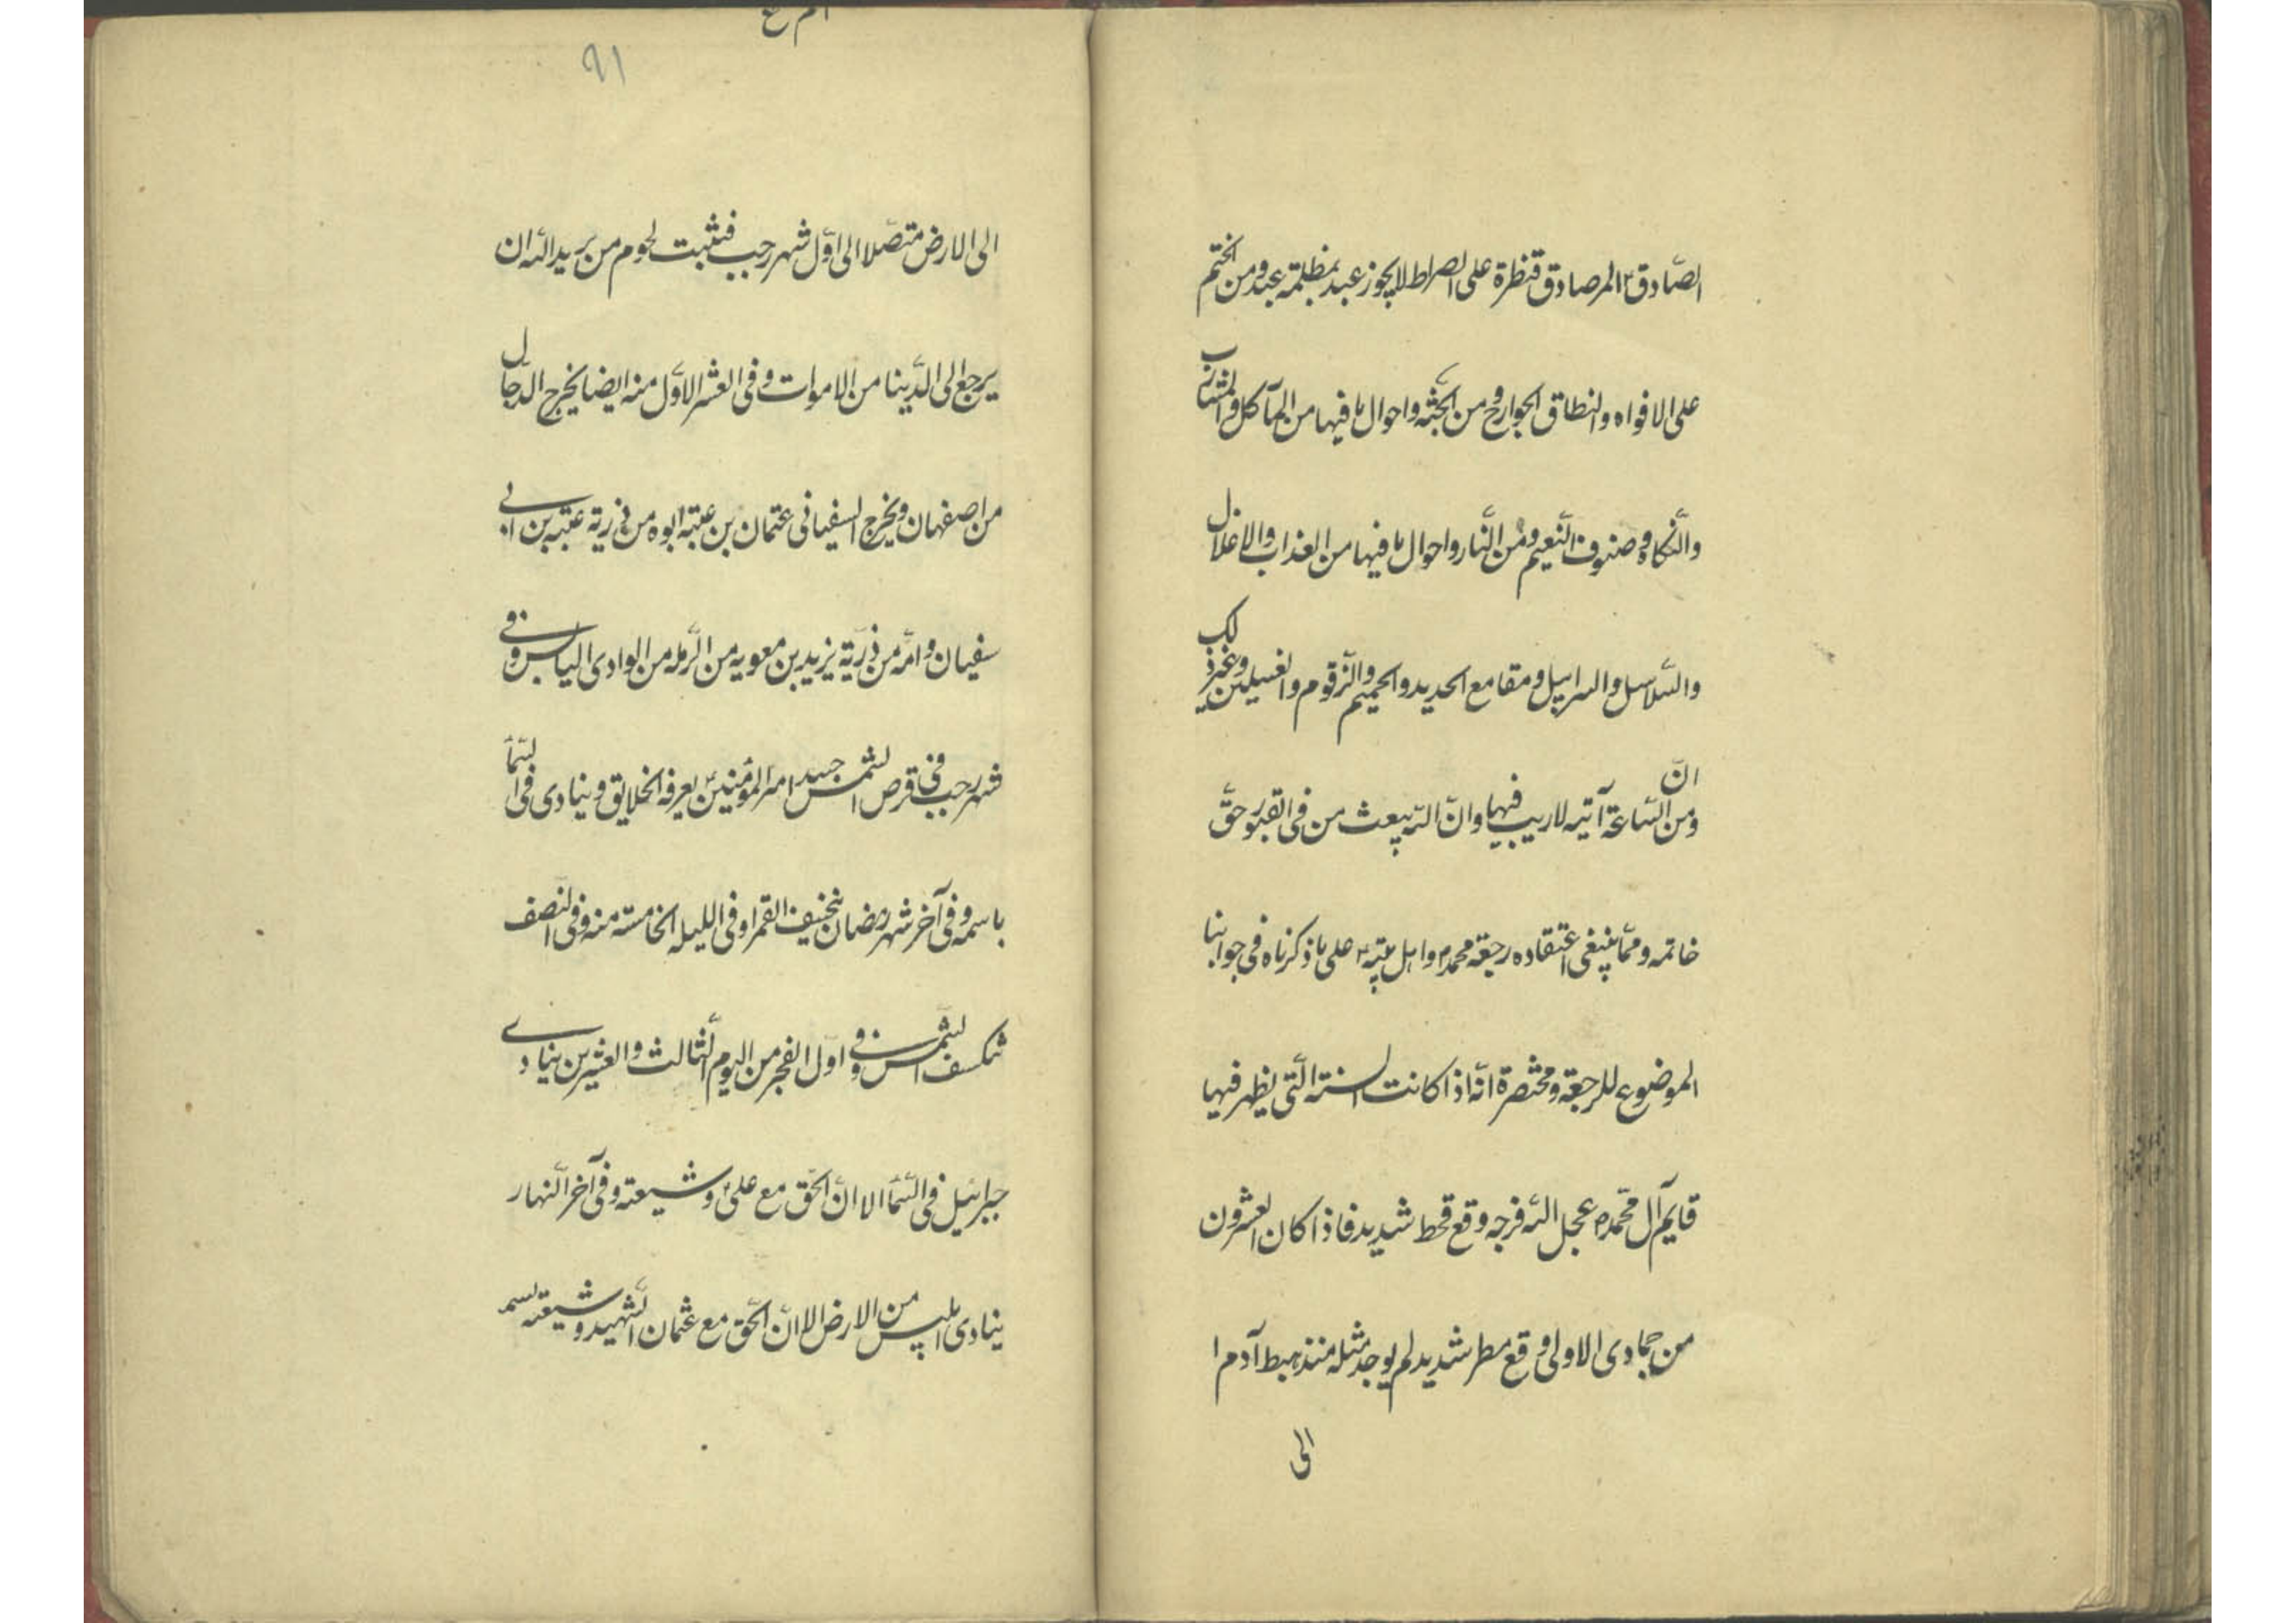 الصّادق ع المرصاد قنطرة على الصراط لا يجوز عبد بمظلمة عبد ومن الختم
على الافواه وانطاق الجوارح ومن الجنّة واحوال ما فيها من المآكل والمشارب
والنكاح وصنوف النعيم ومن النّار واحوال ما فيها من العذاب والاغلال
والسّلاسل والسرابيل ومقامع الحديد والحميم والزّقوم والغسلين وغير ذلك
ومن انّ السّاعة آتية لا ريب فيها وانّ اللّه يبعث من فى القبور حقّ
خاتمه وممّا ينبغى اعتقاده رجعة محمد ص واهل بيته ع على ما ذكرناه فى جوابنا
الموضوع للرجعة ومختصرة انّه اذا كانت السنة الّتى يظهر فيها
قايم آل محمّد ص عجل اللّه فرجه وقع قحط شديد فاذا كان العشرون
من جمادى الاولى وقع مطر شديد لم يوجد مثله منذ هبط آدم ا
الى
٩١
الى الارض متصّلا الى اوّل شهر رجب فتثبت لحوم من يريد اللّه ان
يرجع الى الدّينا من الاموات وفى العشر الاوّل منه ايضا يخرج الدجّال
من اصفهان ويخرج السفيانى عثمان بن عتبه ابوه من ذرية عتبه بن ابى
سفيان وامّه من ذرّية يزيد بن معويه من الرّمله من الوادى اليابس وفى
شهر رجب فى قرص الشّمس جسد امير المؤمنين ع يعرفه الخلايق وينادى فى السّمآ
باسمه وفى آخر شهر رمضان ينخسف القمر او فى الليله الخامسة منه وفى النّصف
تنكسف الشّمس وفى اوّل الفجر من اليوم الثّالث والعشرين ينادى
جبرائيل فى السّمآ الا انّ الحّق مع علىّ ع وشيعته وفى آخر النّهار
ينادى ابليس من الارض الا انّ الحّق مع عثمان الشّهيد وشيعته